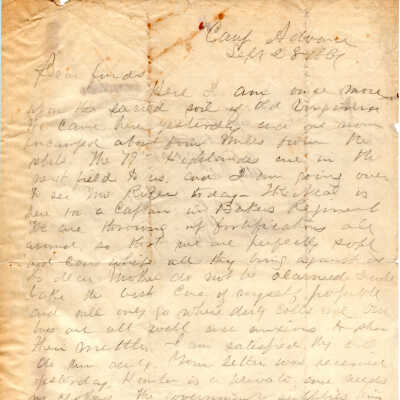 Camp Advance
Sept 28 1861
Dear friends
Here I am once more
upon the sacred soil of Old Virginia
We came here yesterday and are now
encamped about four miles from the
The 79th Highlanders are in the
next field to us and I am going over
to see Mr to day
here in a Captain in Bakers Regiment
We are throwing up fortifications all
around, so that we are perfectly safe
all they bring against us
So dear Mother do not be alarmed I will
take the best care of myself possible
and will only go where duty calls me
are all well and anxious to show
their mettle. I am satisfied they will
Your letter was received
yesterday. is a private, and needs
no the government supplies him